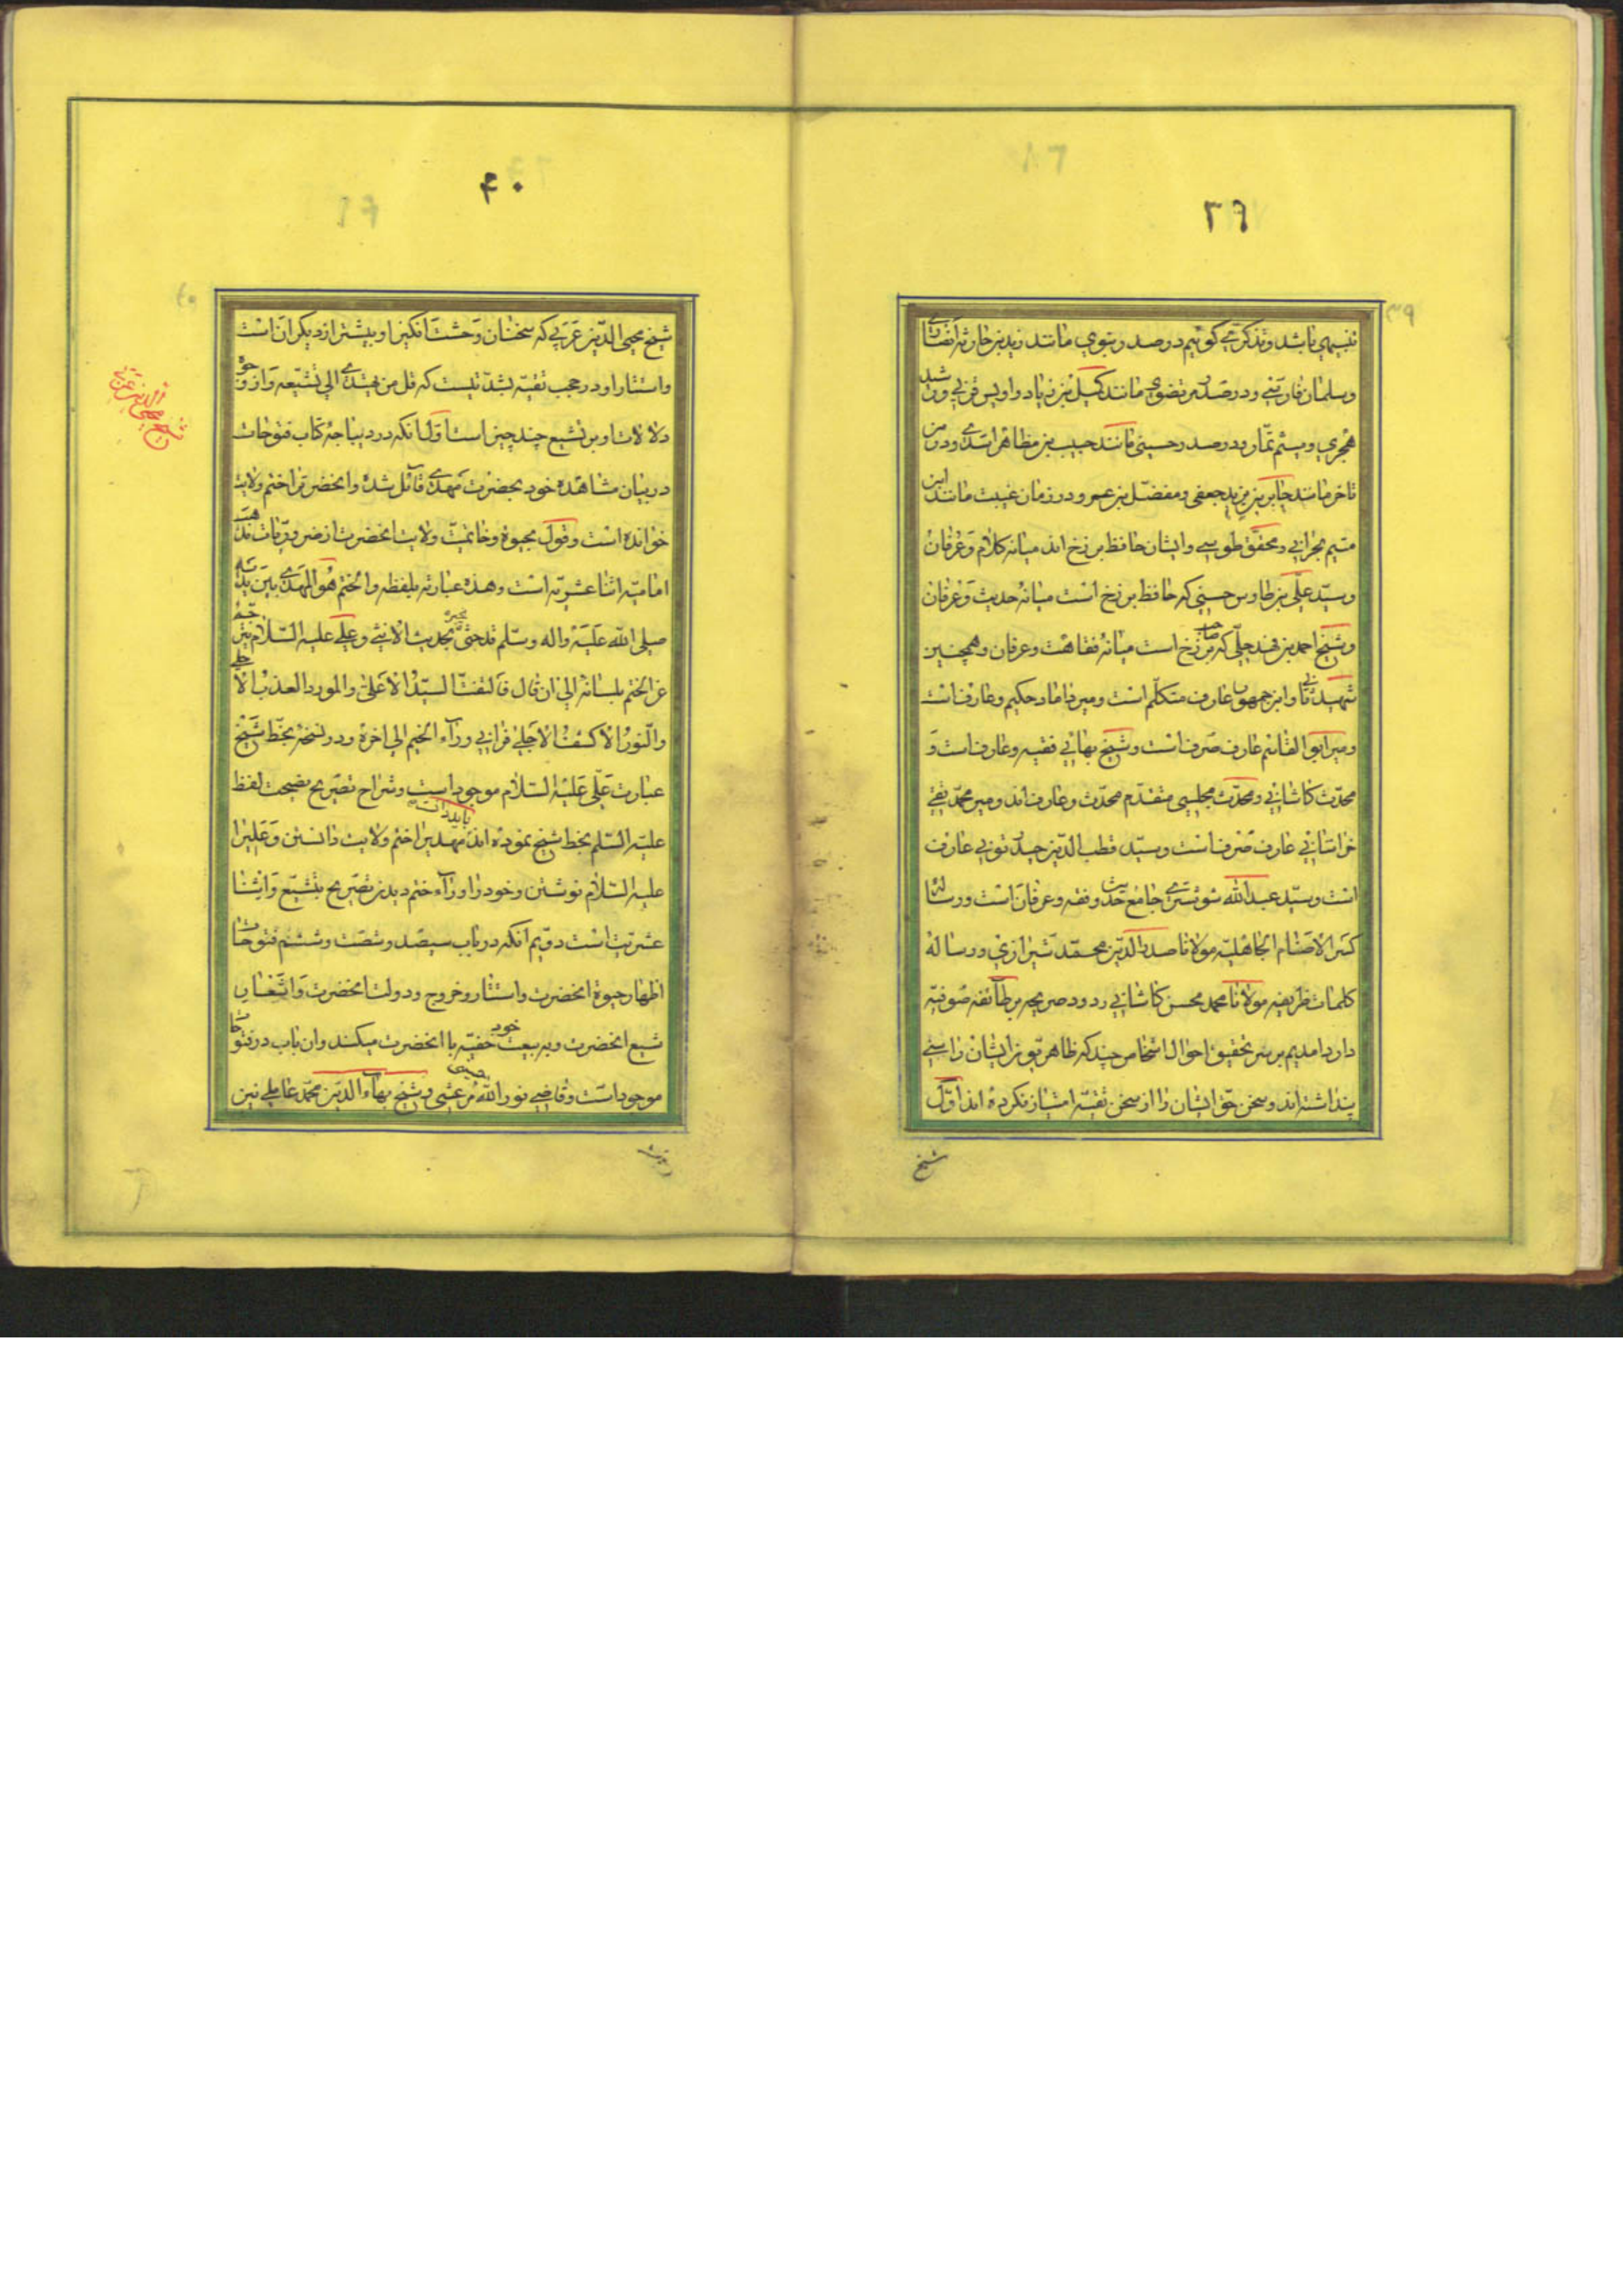 ۳۹
تنبیهی باشد و تذکرتی گوئیم در صدر نبوی مانند زید بن حارثه انصاری
و سلمان فارسی و در صدر مرتضوی مانند کمیل بن زیاد و اویس قرنی و رشید
هجری و میثم تمار و در صدر حسینی مانند حبیب بن مظاهر اسدی و در زمن
تاخر مانند جابر بن یزید جعفی و مفضل بن عمر و در زمان غیبت مانند ابن
میثم بحرانی و محقق طوسی و ایشان حافظ برزخ اند میانه کلام و عرفان
و سید علی بن طاوس حسینی که حافظ برزخ است میانه حدیث و عرفان
و شیخ احمد بن فهد حلی که صاحب برزخ است میانه فقاهت و عرفان و همچنین
شهید ثانی و ابن جمهور عارف متکلم است و میر داماد حکیم و عارف است
و میر ابو القاسم عارف صرف است و شیخ بهائی فقیه و عارف است و
محدث کاشانی و محدث مجلسی متقدم محدث و عارف اند و میر محمد تقی
خراسانی عارف صرف است و سید قطب الدین حیدر تونی عارف
است و سید عبد الله شوشتری جامع حدیث و فقه و عرفان است و رساله
کسر الاصنام الجاهلیه مولانا صدر الدین محمد شیرازی و رساله
کلمات ظریفه مولانا محمد محسن کاشانی ردود صریحه بر طائفه صوفیه
دارد امدیم بر سر تحقیق احوال اشخاص چند که ظاهر بین ایشان را سنی
پنداشته اند و سخن حق ایشان را از سخن تقیه امتیاز نکرده اند اول
شیخ
۴۰
شیخ محیی الدین عربی که سخنان وحشت انگیز او بیشتر از دیگران است
و استتار او در حجب تقیه بشدتیست که قل من یهتدی الی تشیعه و از وجوه
دلالات او بر تشیع چند چیز است اولا انکه در دیباجه کتاب فتوحات
در بیان مشاهده خود بحضرت مهدی قائل شده و انحضرت را ختم ولایت
خوانده است و قول بحیوة و خاتمیت ولایت انحضرت از ضروریات مذهب
امامیه اثنا عشریه است و هذه عبارته بلفظه و الختم هو المهدی بین یدیه
صلی الله علیه و اله و سلم قد جثی یخبره بحدیث الانثی و علی علیه السلام یترجم
عن الختم بلسانه الی ان قال فالتفت السید الاعلی و المورد العذب الاحلی
و النور الاکشف الاجلی فرانی وراء الختم الی اخره و در نسخه بخط شیخ
عبارت علی علیه السلام موجود است و شراح تصریح بصحت لفظ
علیه السلم بخط شیخ نموده اند مهدی را ختم ولایت دانستن و علی را
علیه السلام نوشتن و خود را وراء ختم دیدن تصریح بتشیع و اثنا
عشریت است دویم انکه در باب سیصد و شصت و ششم فتوحات
اظهار حیوة انحضرت و استتار و خروج و دولت انحضرت و اشعار
تبع انحضرت و به بیعت خفیه خود با انحضرت میکند و ان باب در فتوحات
موجود است و قاضی نور الله مرعشی و شیخ بهاء الدین محمد عاملی نیز
شیخ محیی الدین عربی